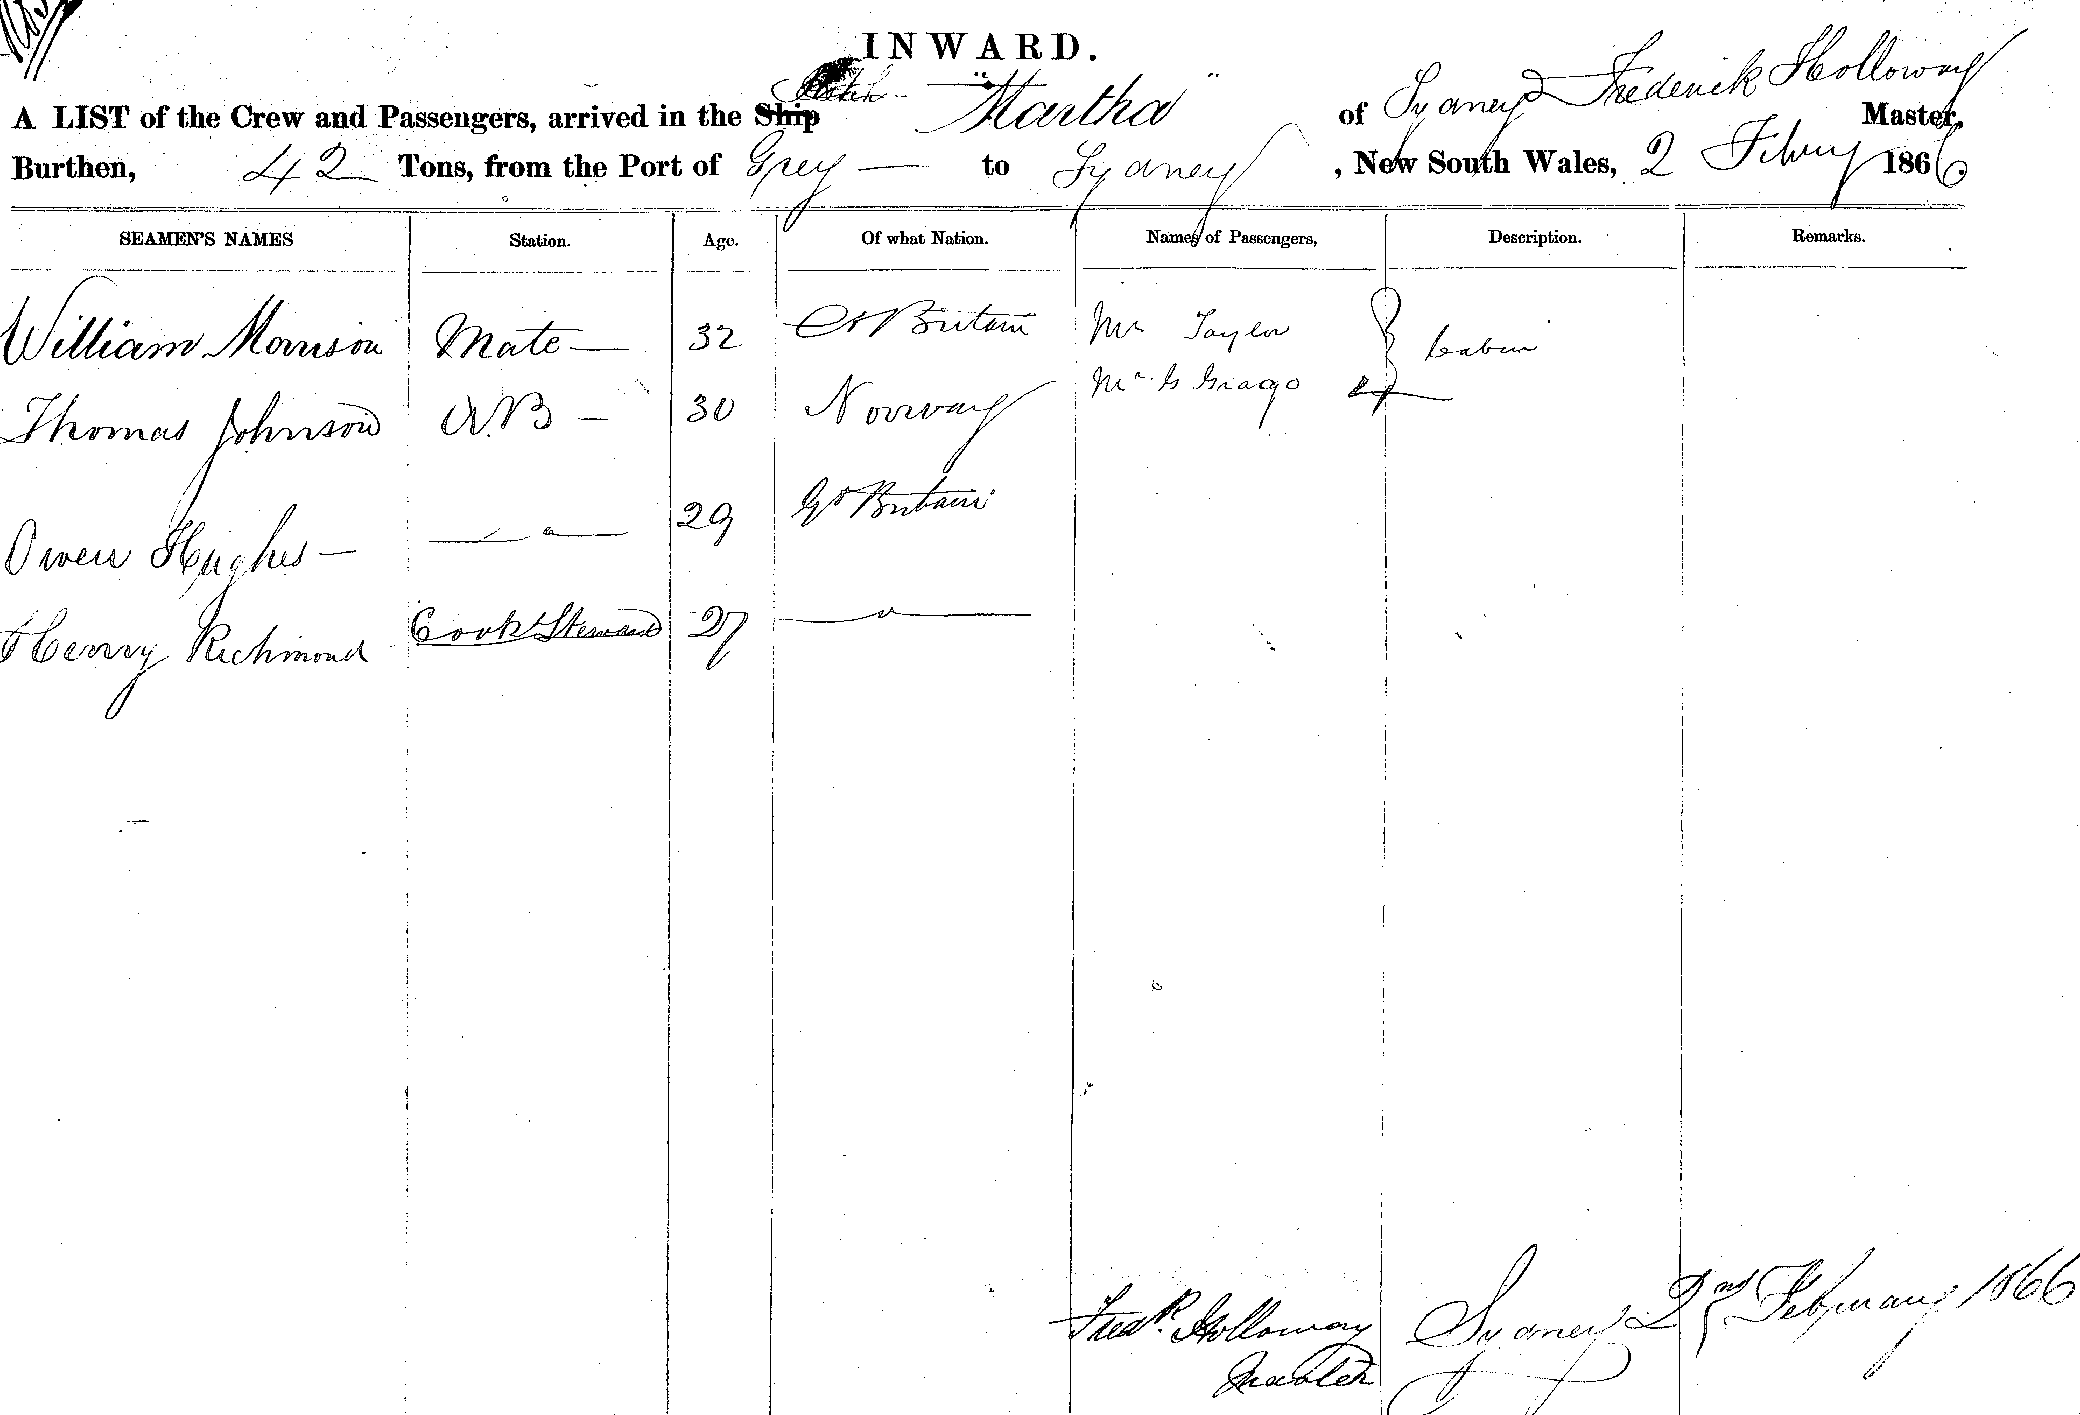 INWARD.
A LIST of the Crew and Passengers, arrived in the Ship Ketch "Martha" of Sydney Frederick Holloway Master,
Burthen, 42 Tons, from the Port of Grey — to Sydney, New South Wales, 2 Febry 1866.
SEAMEN'S NAMES Station. Age. Of what Nation. Names of Passengers, Description. Remarks.
William Morrison Mate — 32 Gt Britain Mr Taylor Cabin
Thomas Johnson A.B — 30 Norway Mr G
Owen Hughes — — " — 29 Gt Britain
Henry Richmond Cook & Steward 27 — " —
Fredk. Holloway Sydney 2nd February 1866
Master